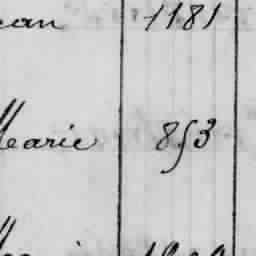 ean 1181
Marie 853